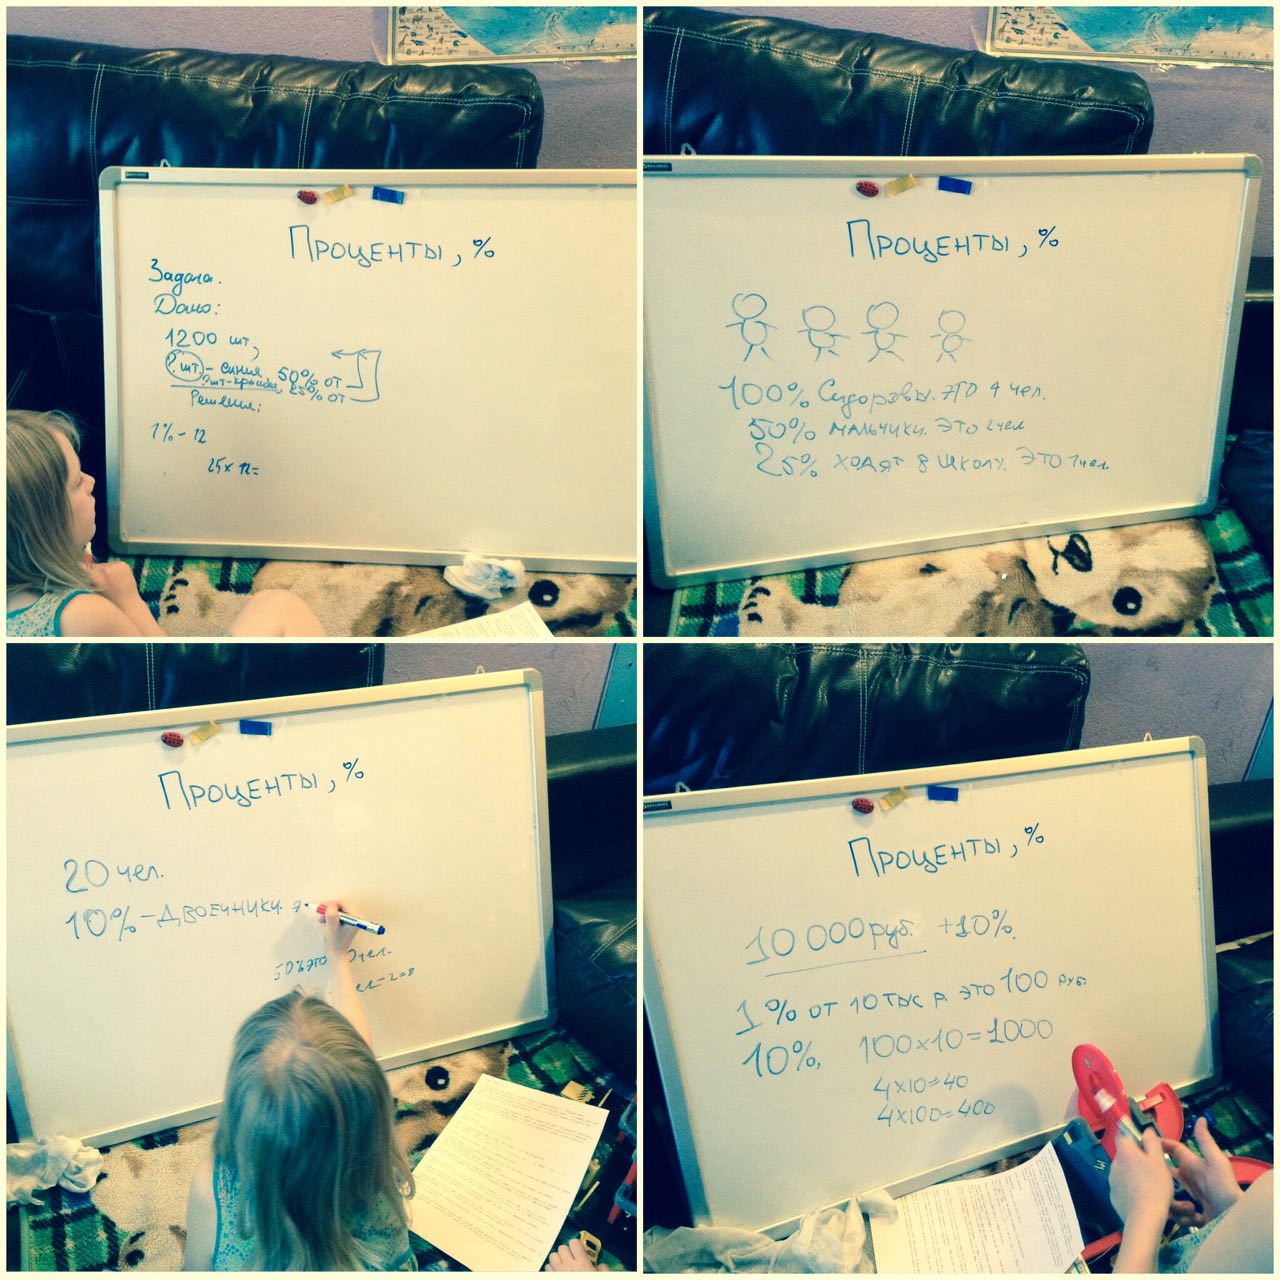 Проценты, %
Задача.
Дано:
1200 шт,
? шт. - синия, 50% от
? шт - красная, 25% от
Решения:
1% - 12
25 х 12 =
Проценты, %
100% Сидоровы. это 4 чел.
50% мальчики. это 2 чел
25% ходят в школу. это 1 чел.
Проценты, %
20 чел.
10% - двоечники. э
50% от
0 чел.
- 2 = 8
Проценты, %
10 000 руб. +10%.
1% от 10 тыс р. это 100 руб.
10%, 100х10=1000
4х10=40
4х100=400